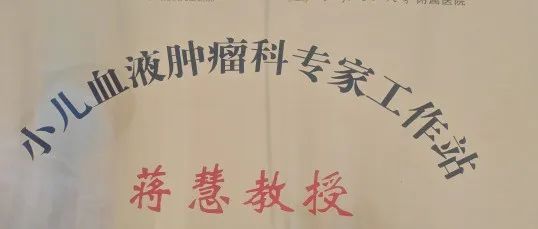 附属医院
小儿血液肿瘤科专家工作站
蒋慧教授